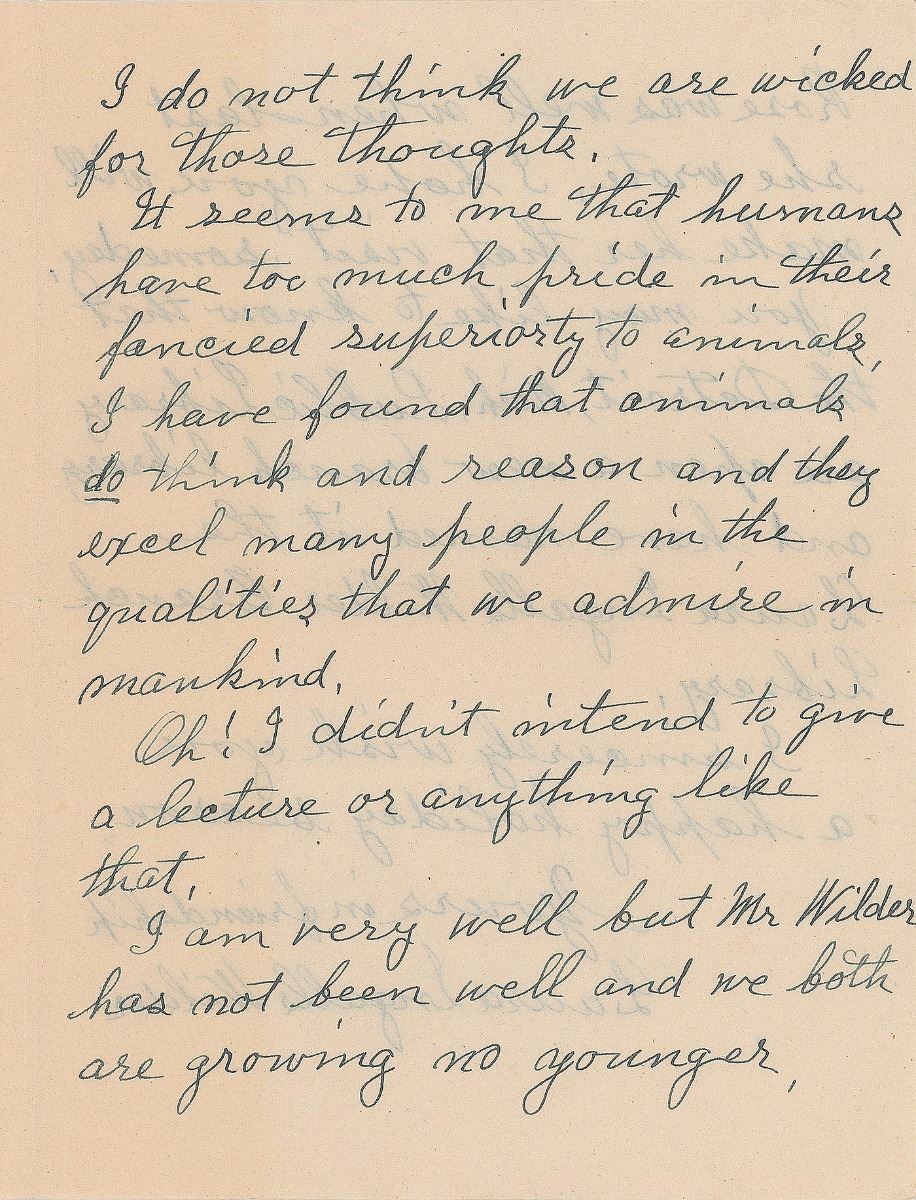 I do not think we are wicked
for those thoughts.
It seems to me that humans
have too much pride in their
fancied superiorty to animals,
I have found that animals
do think and reason and they
excel many people in the
qualities that we admire in
mankind.
Oh! I didn't intend to give
a lecture or anything like
that,
I am very well but Mr Wilder
has not been well and we both
are growing no younger,